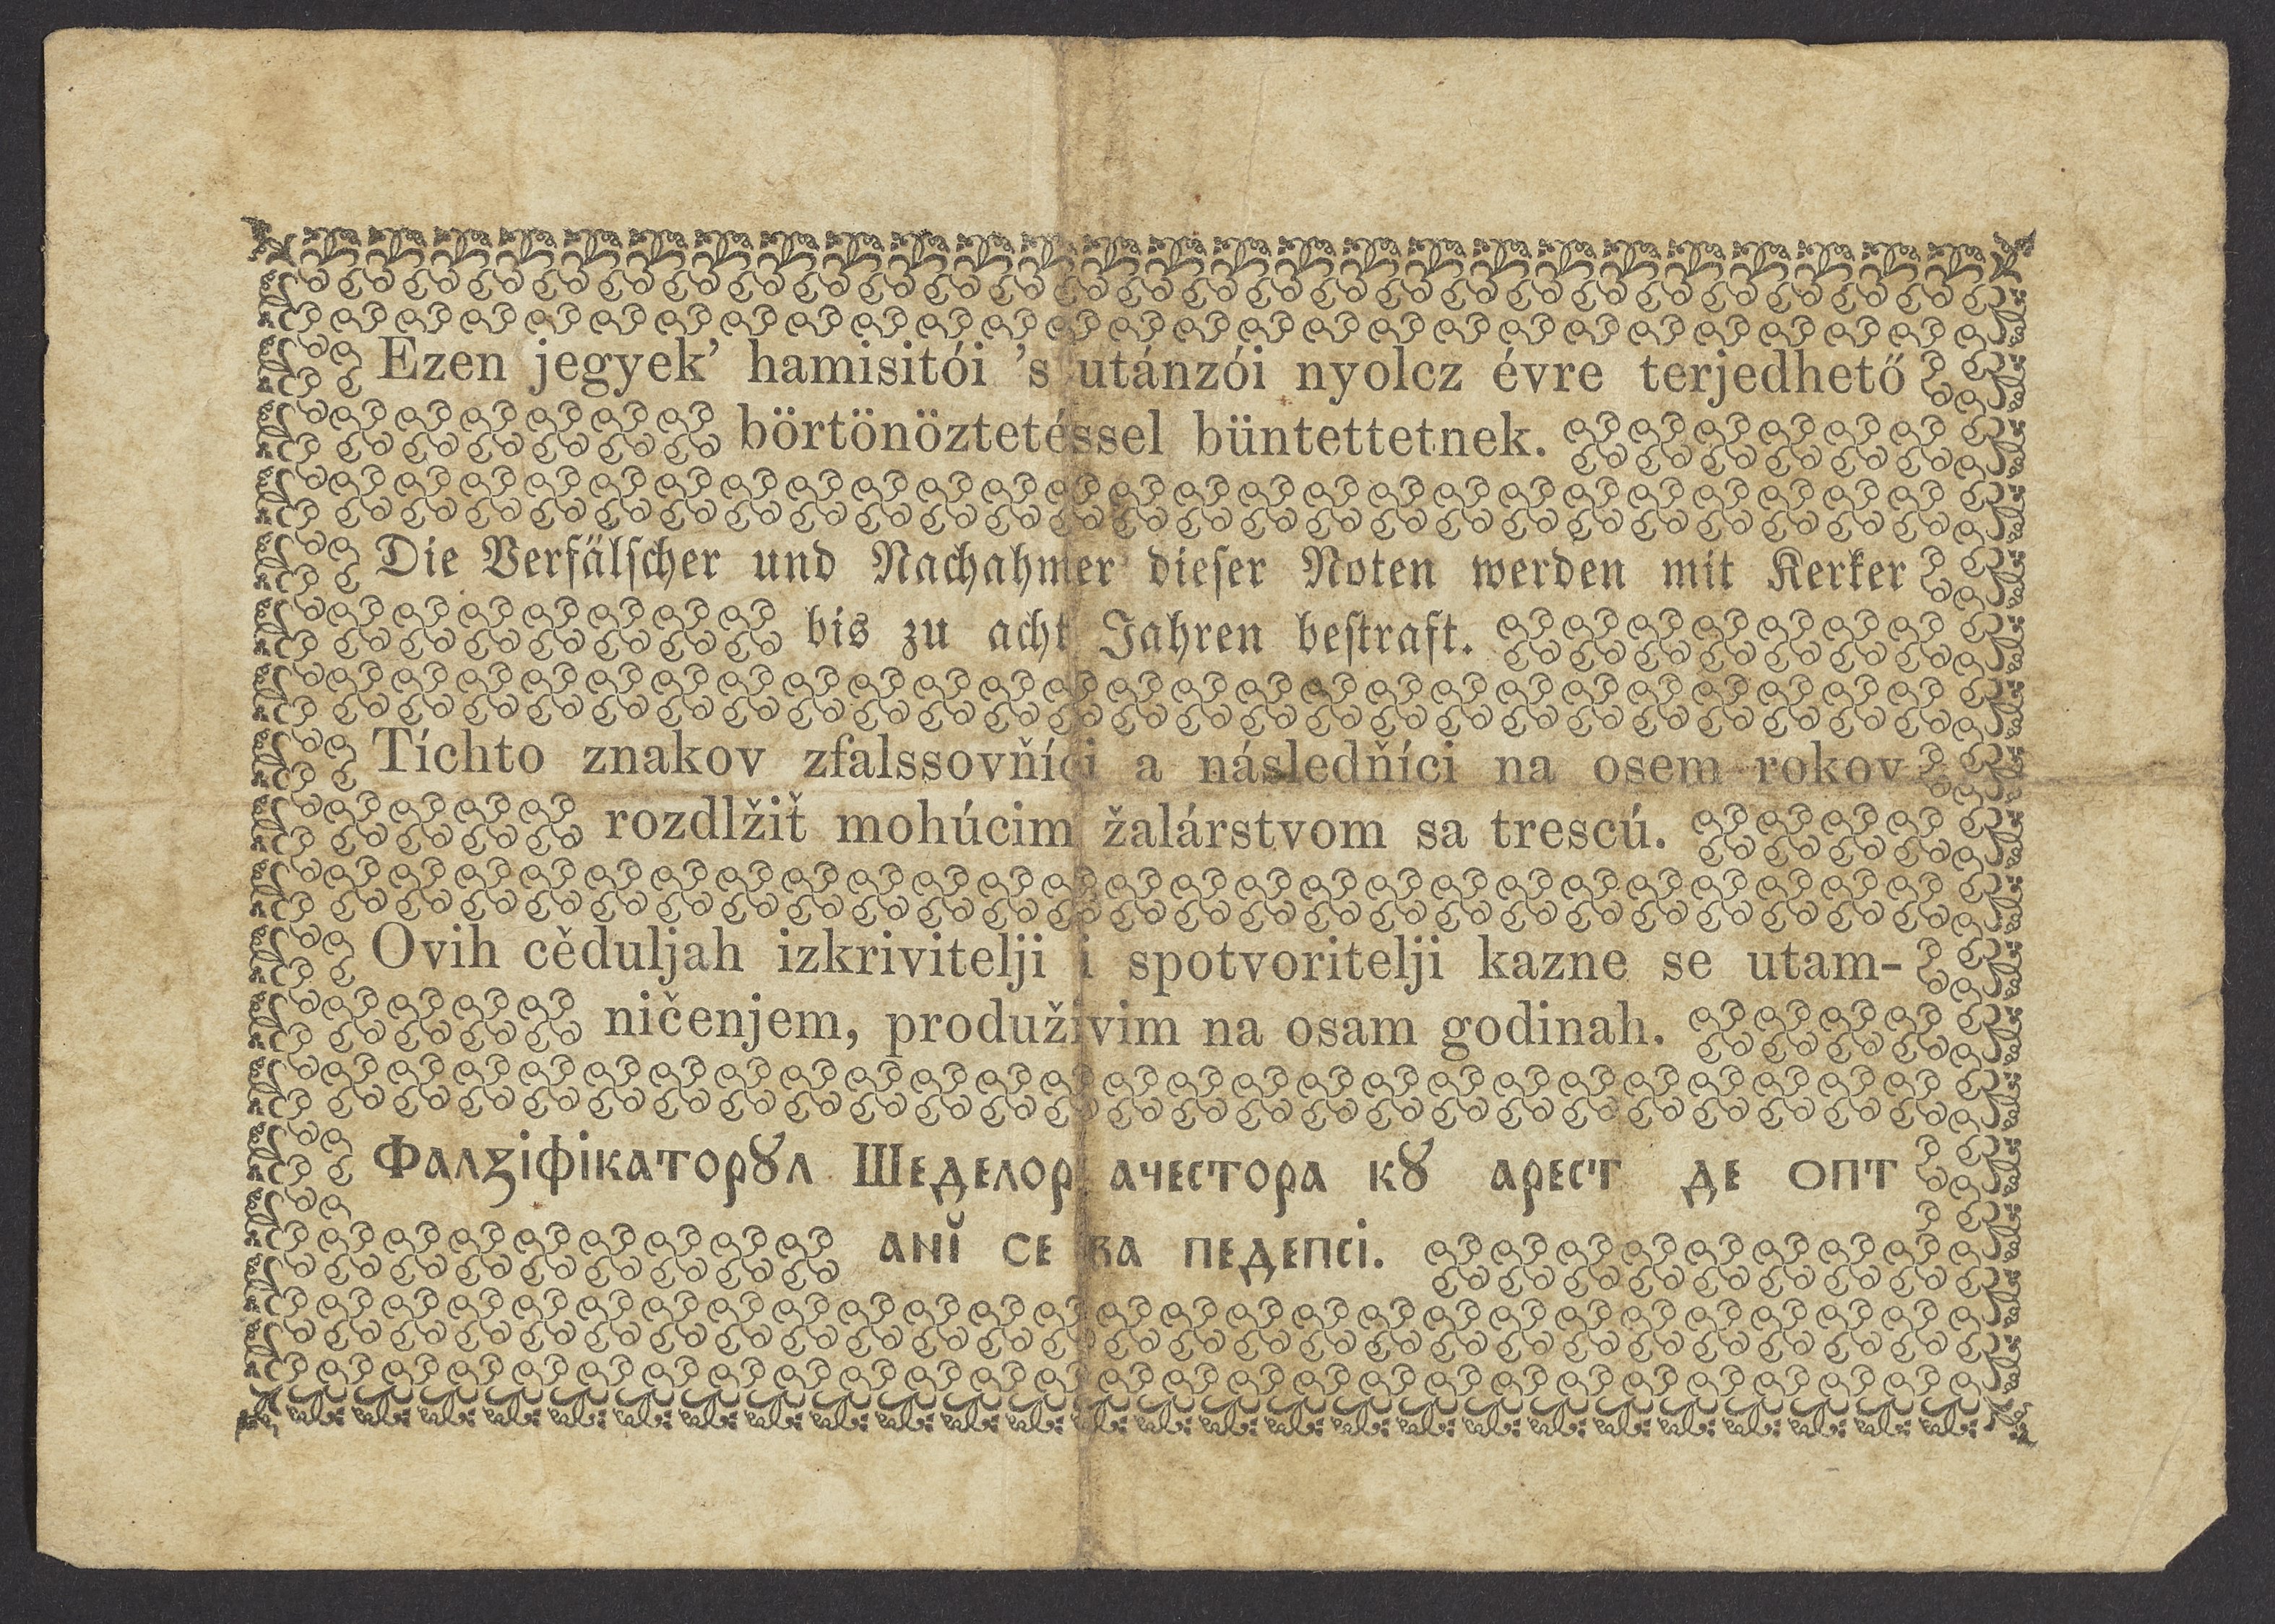 Ezen jegyek’ hamisitói ’s utánzói nyolcz évre terjedhető
börtönöztetéssel büntettetnek.
Die Verfälscher und Nachahmer dieser Noten werden mit Kerker
bis zu acht Jahren bestraft.
Tíchto znakov zfalssovňíci a následňíci na osem rokov
rozdlžiť mohúcim žalárstvom sa trescú.
Ovih cěduljah izkrivitelji i spotvoritelji kazne se utam-
ničenjem, produživim na osam godinah.
Фалѯіфікаторꙋл Шеделор ачестора кꙋ арест де опт
анĭ се ва педепсі.